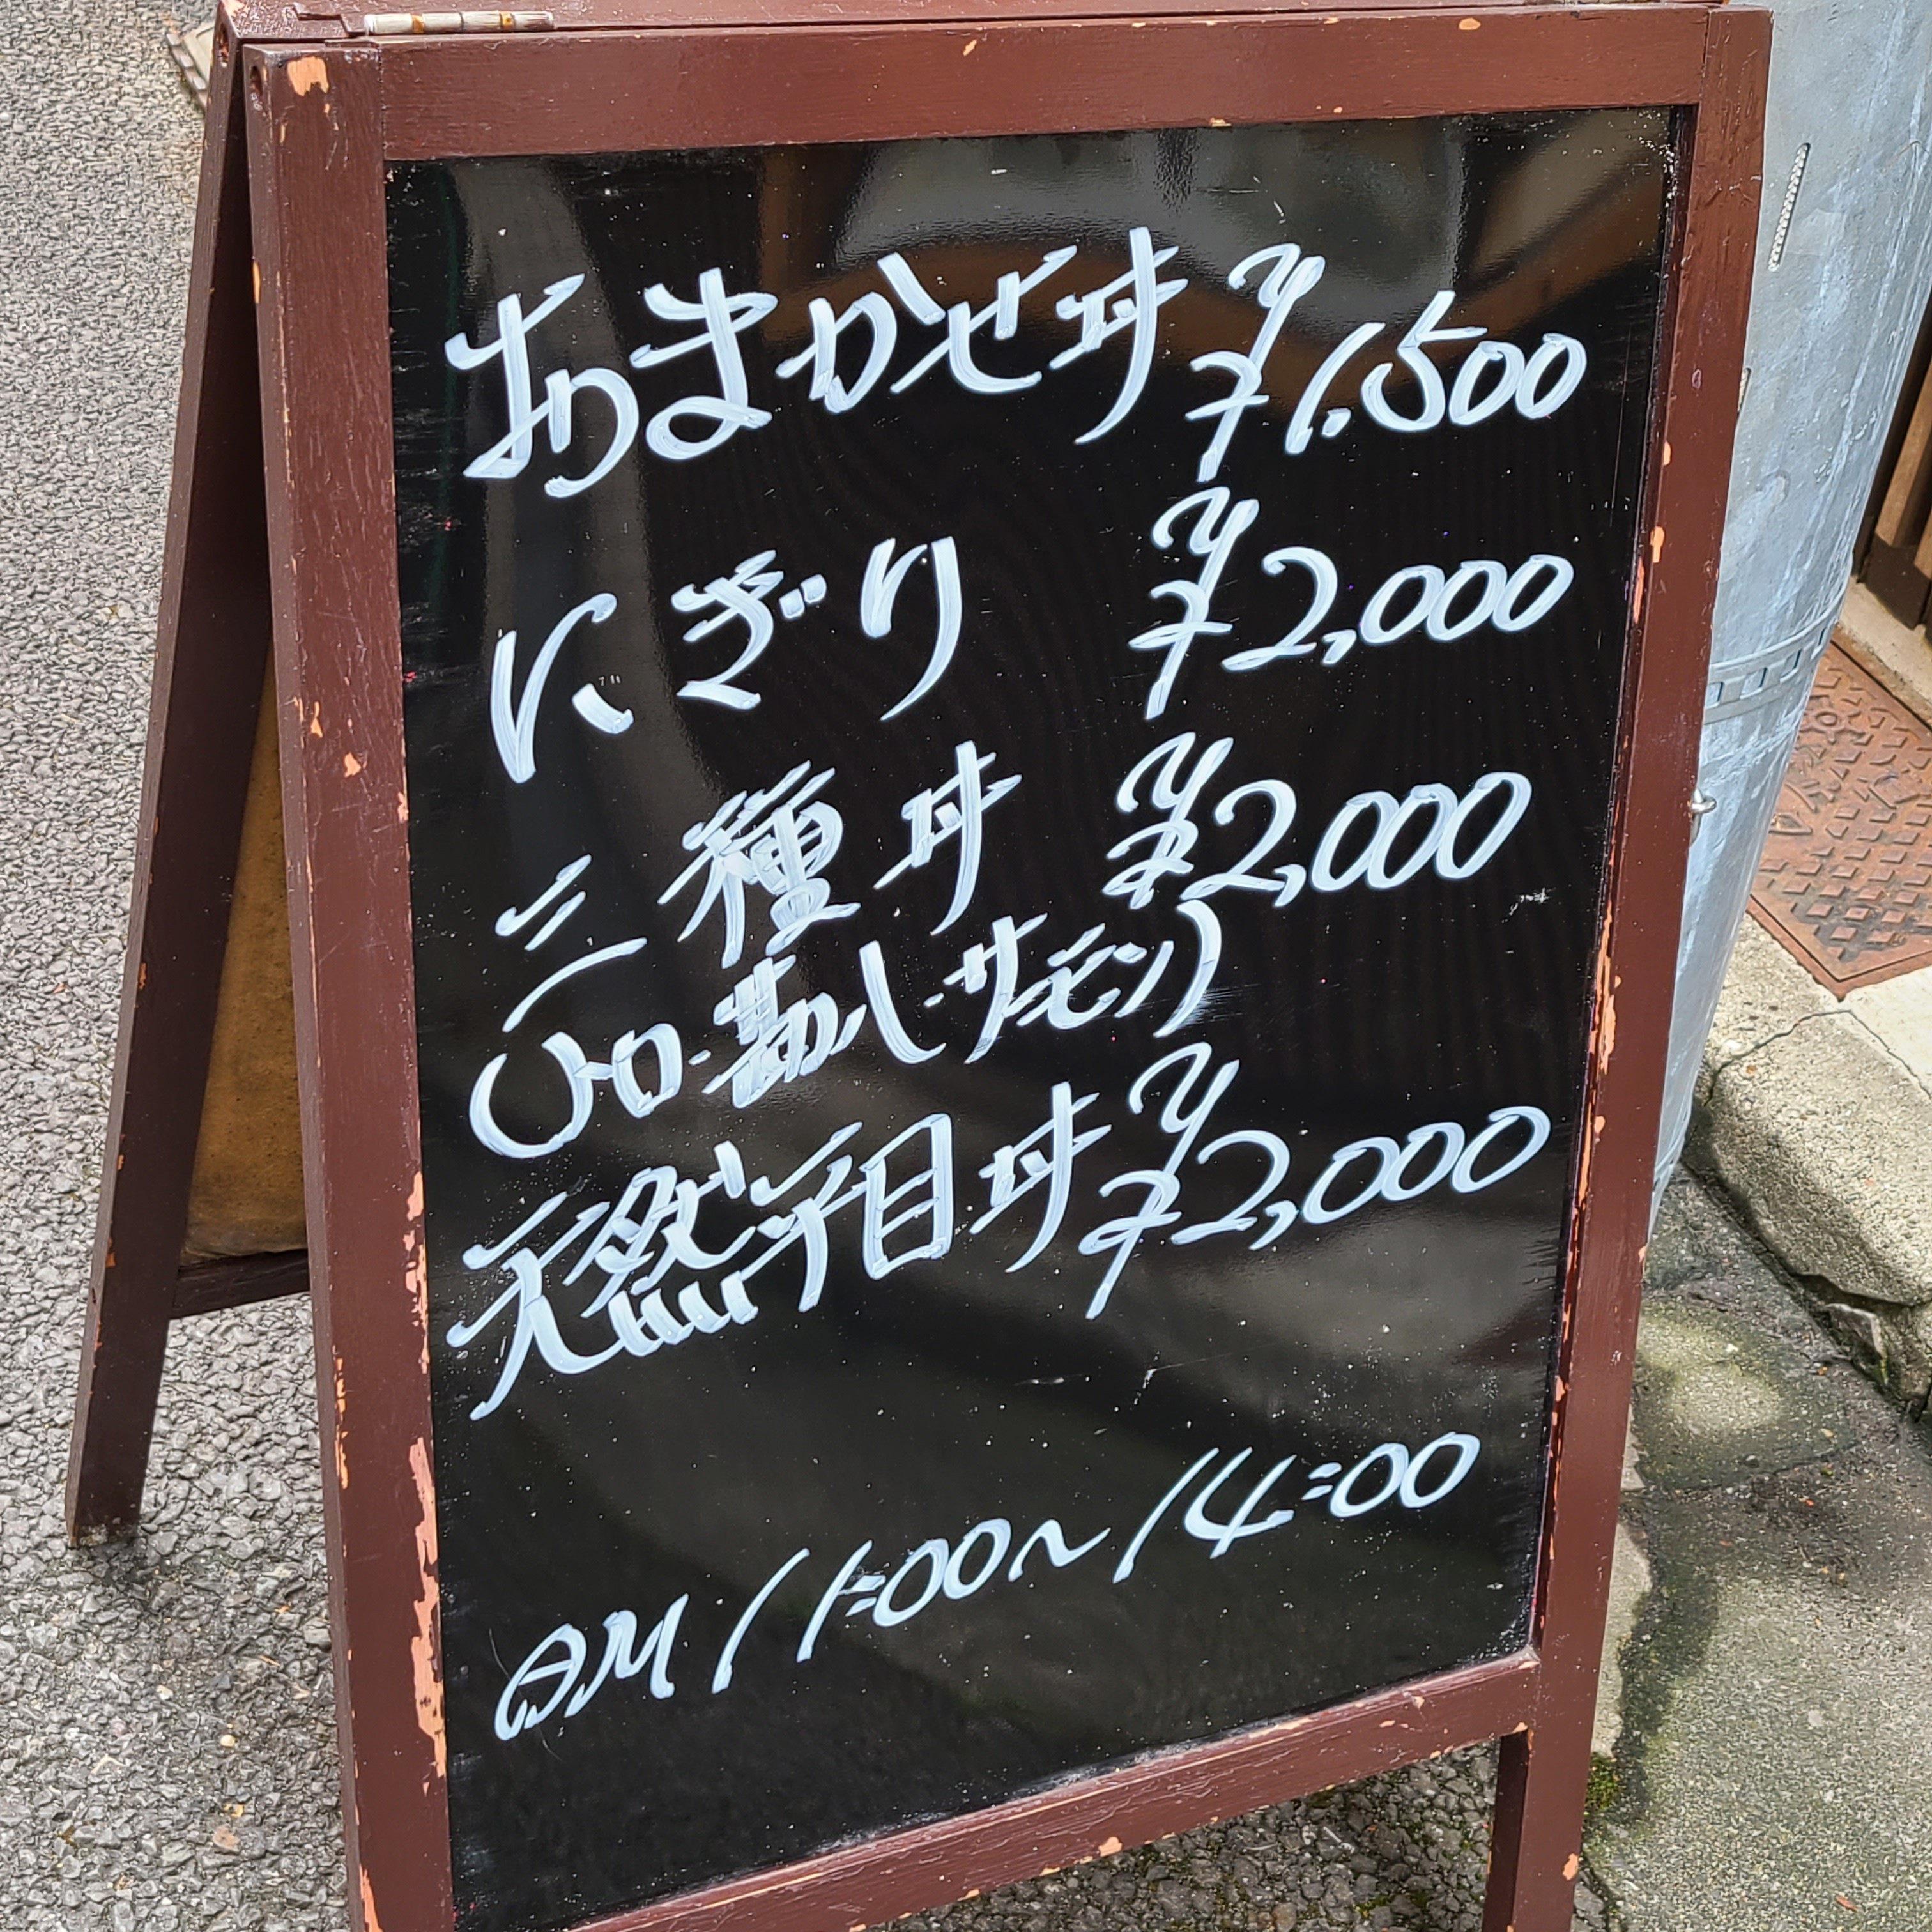 おまかせ丼 ¥1.500
にぎり ¥2,000
三種丼 ¥2,000
天然平目丼 ¥2,000
AM 11:00~14:00